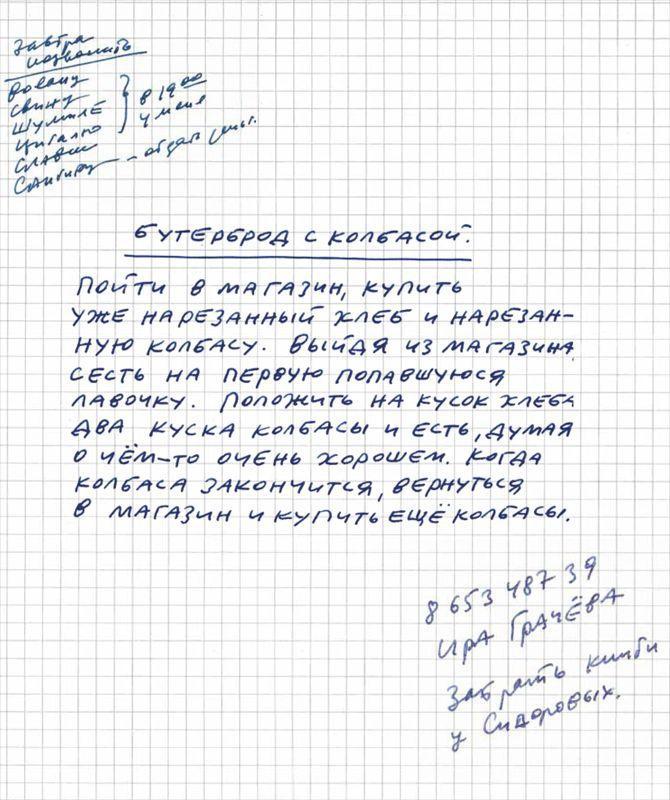 Завтра
позвонить
Вовану
Свину
Шумиле
Цигалю
Славе
} в 19 00
у меня
— отдать
БУТЕРБРОД С КОЛБАСОЙ.
ПОЙТИ В МАГАЗИН, КУПИТЬ
УЖЕ НАРЕЗАННЫЙ ХЛЕБ И НАРЕЗАН-
НУЮ КОЛБАСУ. ВЫЙДЯ ИЗ МАГАЗИНА
СЕСТЬ НА ПЕРВУЮ ПОПАВШУЮСЯ
ЛАВОЧКУ. ПОЛОЖИТЬ НА КУСОК ХЛЕБА
ДВА КУСКА КОЛБАСЫ И ЕСТЬ, ДУМАЯ
О ЧЁМ-ТО ОЧЕНЬ ХОРОШЕМ. КОГДА
КОЛБАСА ЗАКОНЧИТСЯ, ВЕРНУТЬСЯ
В МАГАЗИН И КУПИТЬ ЕЩЁ КОЛБАСЫ.
8 653 487 39
Ира Грачёва
Забрать
у Сидоровых.